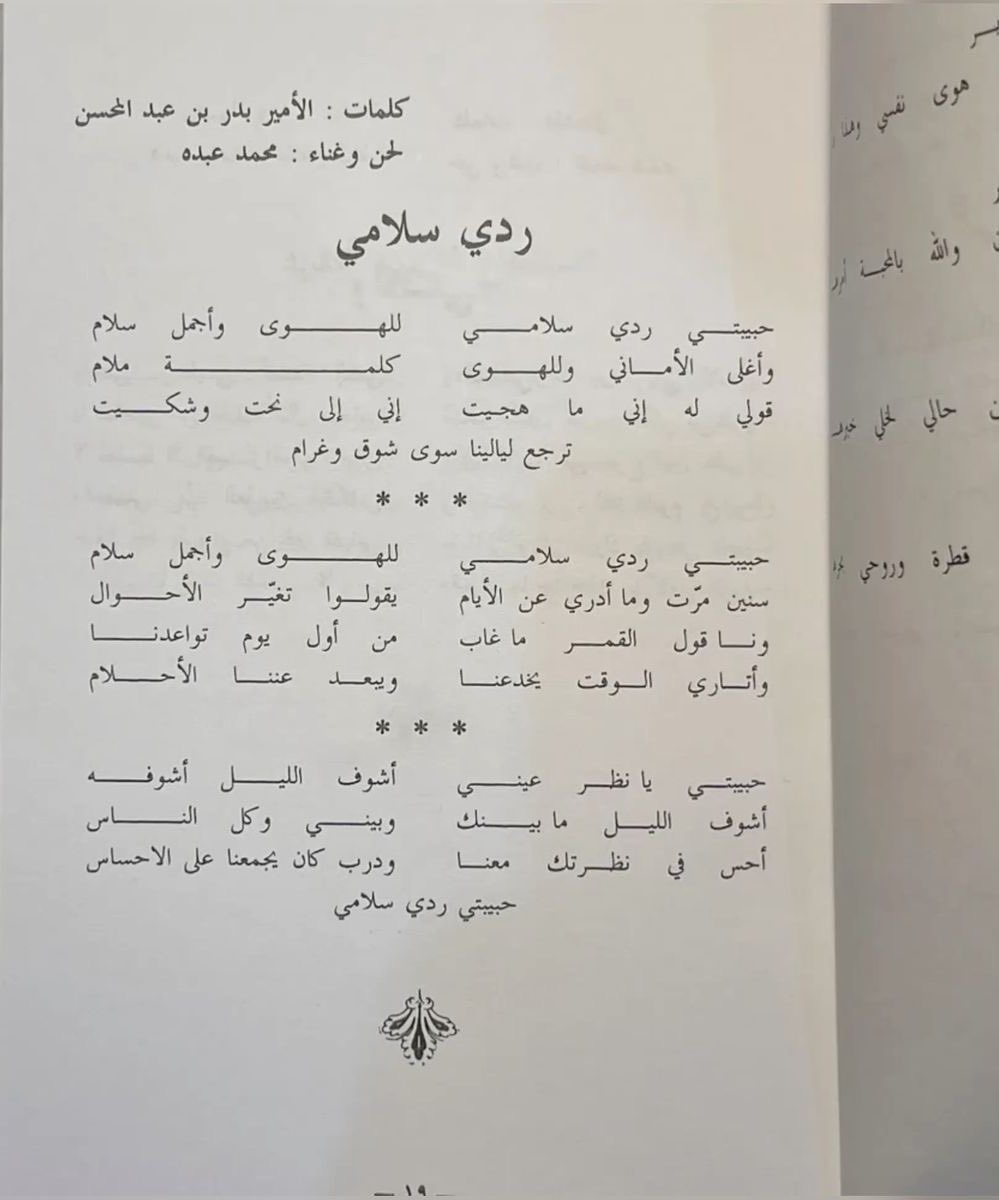 كلمات : الأمير بدر بن عبد المحسن
لحن وغناء : محمد عبده
ردي سلامي
حبيبتي ردي سلامي للهوى وأجمل سلام
وأغلى الأماني وللهوى كلمة ملام
قولي له إني ما هجيت إني إلى نحت وشكيت
ترجع ليالينا سوى شوق وغرام
* * *
حبيبتي ردي سلامي للهوى وأجمل سلام
سنين مرّت وما أدري عن الأيام يقولوا تغيّر الأحوال
ونا قول القمر ما غاب من أول يوم تواعدنا
وأتاري الوقت يخدعنا ويبعد عننا الأحلام
* * *
حبيبتي يا نظر عيني أشوف الليل أشوفه
أشوف الليل ما بينك وبيني وكل الناس
أحس في نظرتك معنا ودرب كان يجمعنا على الاحساس
حبيبتي ردي سلامي
— ١٩ —
هوى نفسي
والله بالمحبة
حالي لخلي
قطرة وروحي